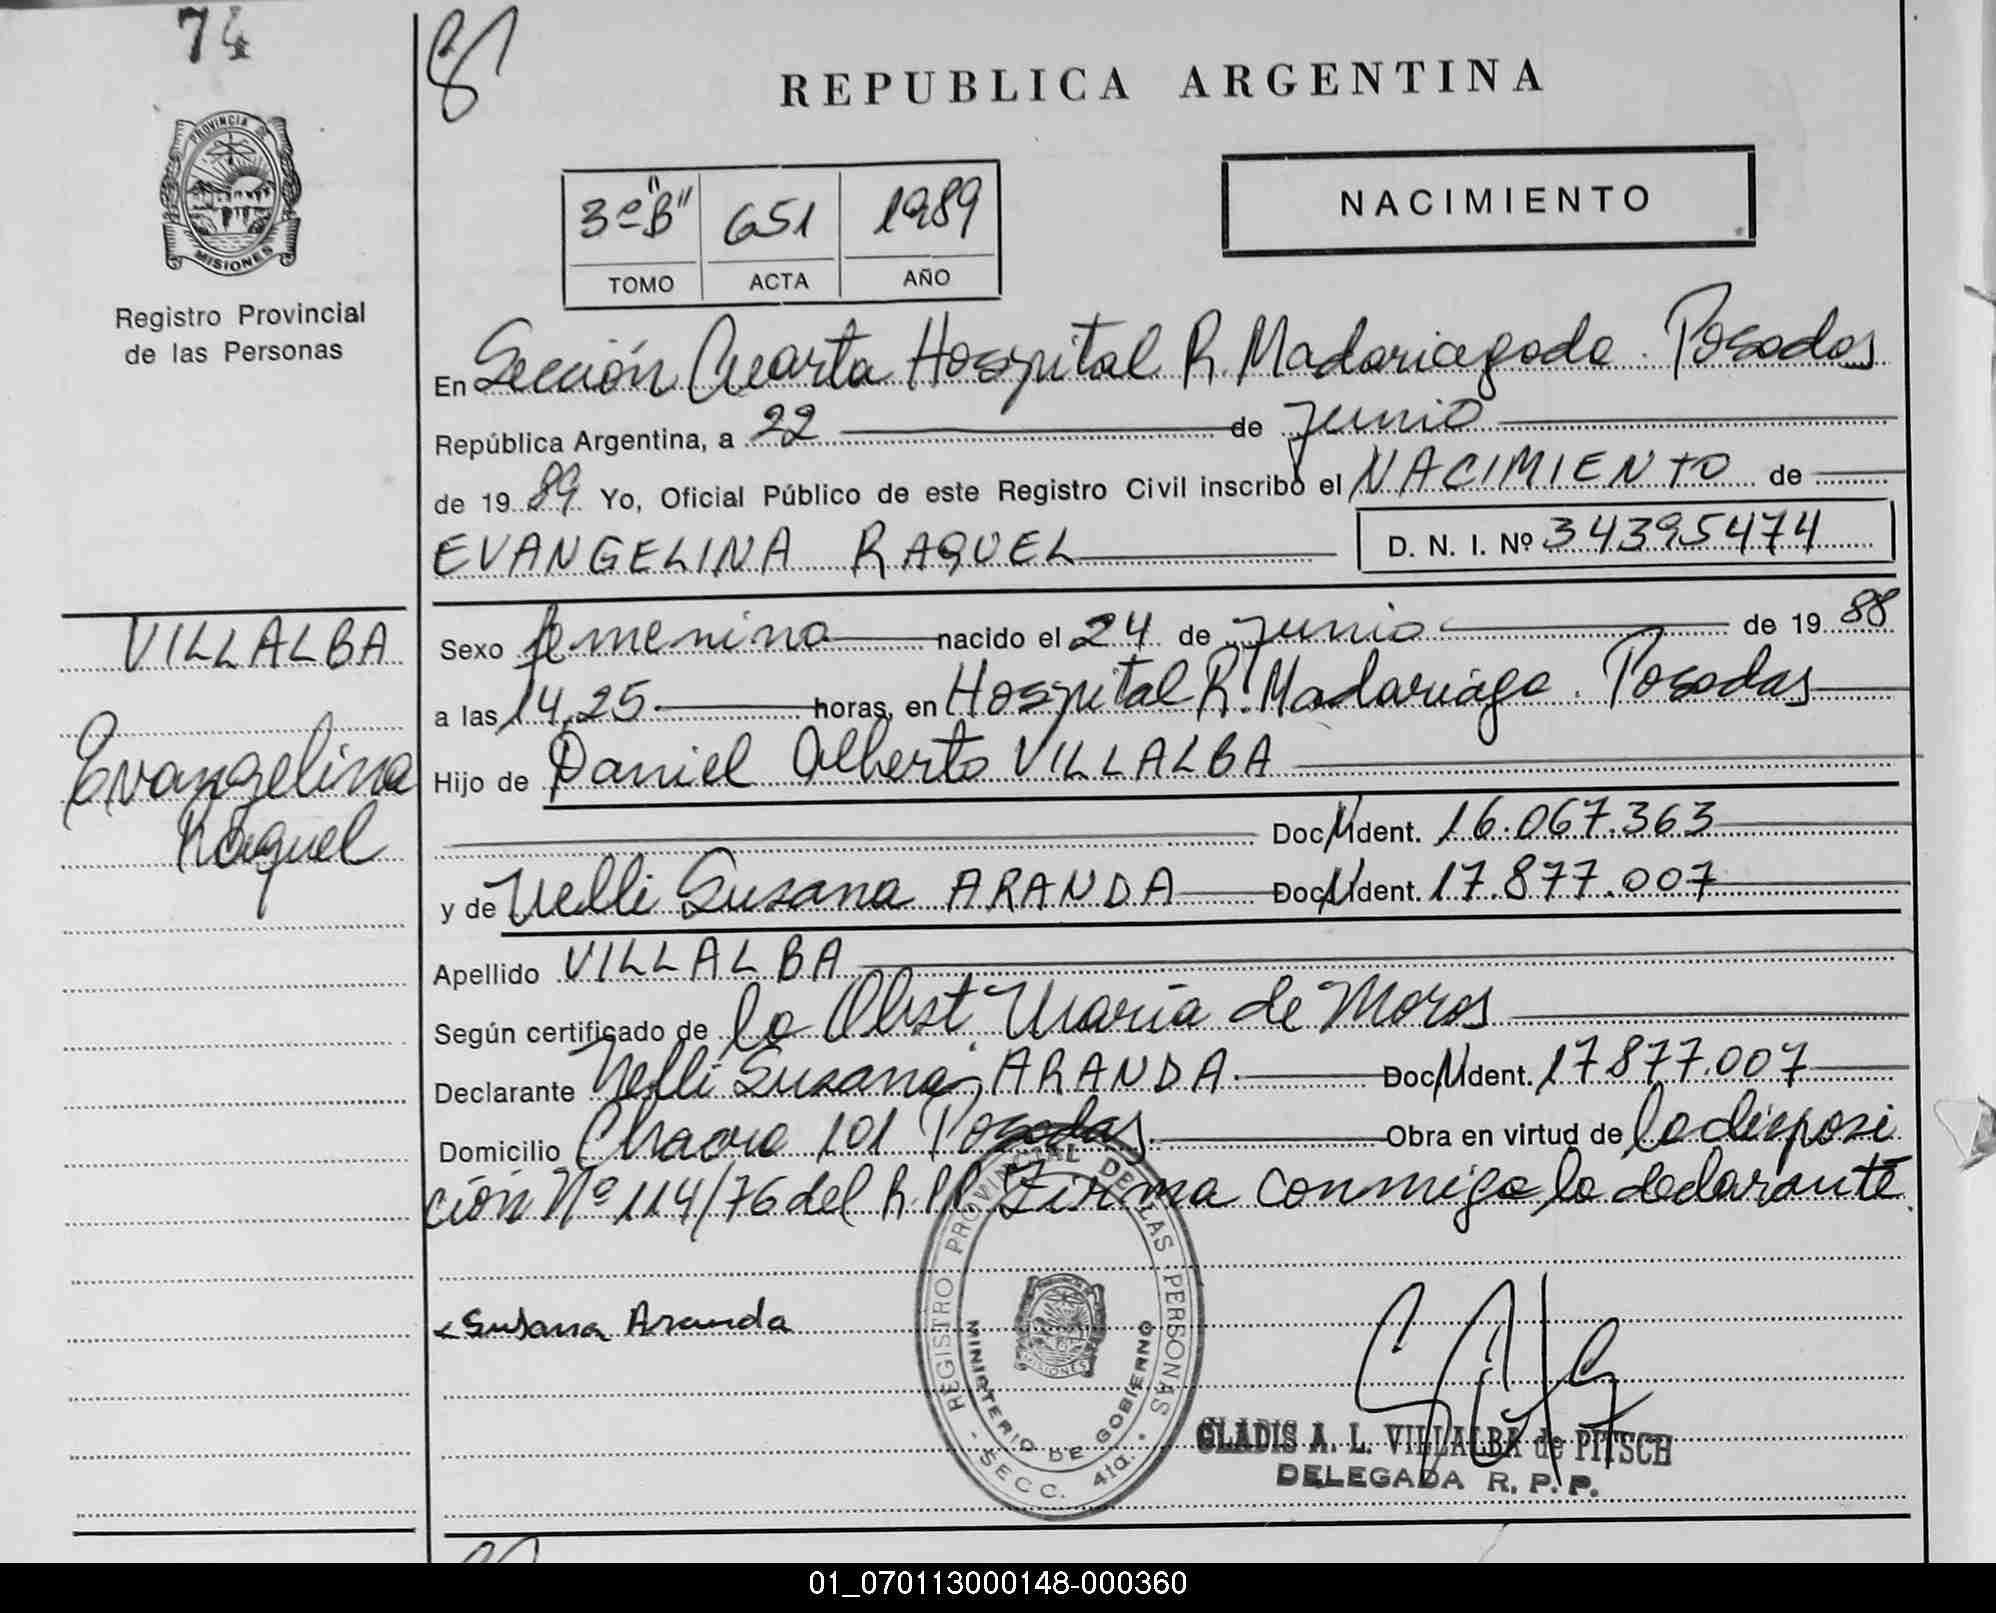 74
81
REPUBLICA ARGENTINA
PROVINCIA DE
MISIONES
Registro Provincial
de las Personas
3º "B" 651 1989
TOMO ACTA AÑO
NACIMIENTO
En Sección Cuarta Hospital R. Madariagada. Posadas
República Argentina, a 22 de Junio
de 1989 Yo, Oficial Público de este Registro Civil inscribo el NACIMIENTO de
EVANGELINA RAQUEL D. N. I. Nº 34395474
VILLALBA
Evangelina
Raquel
Sexo femenino nacido el 24 de Junio de 1988
a las 14,25 horas, en Hospital R. Madariaga. Posadas
Hijo de Daniel Alberto VILLALBA
Doc. Ident. 16.067.363
y de Nelli Susana ARANDA Doc. Ident. 17.877.007
Apellido VILLALBA
Según certificado de la Obst. María de Moros
Declarante Nelli Susana ARANDA Doc. Ident. 17877.007
Domicilio Chacra 101 Posadas. Obra en virtud de la disposi
ción Nº 114/76 del R.P.P. Firma conmigo la declarante.
Susana Aranda
REGISTRO PROVINCIAL DE LAS PERSONAS
MINISTERIO DE GOBIERNO
MISIONES
- SECC. 4ta. -
GLADIS A. L. VILLALBA de PITSCH
DELEGADA R. P. P.
01_070113000148-000360